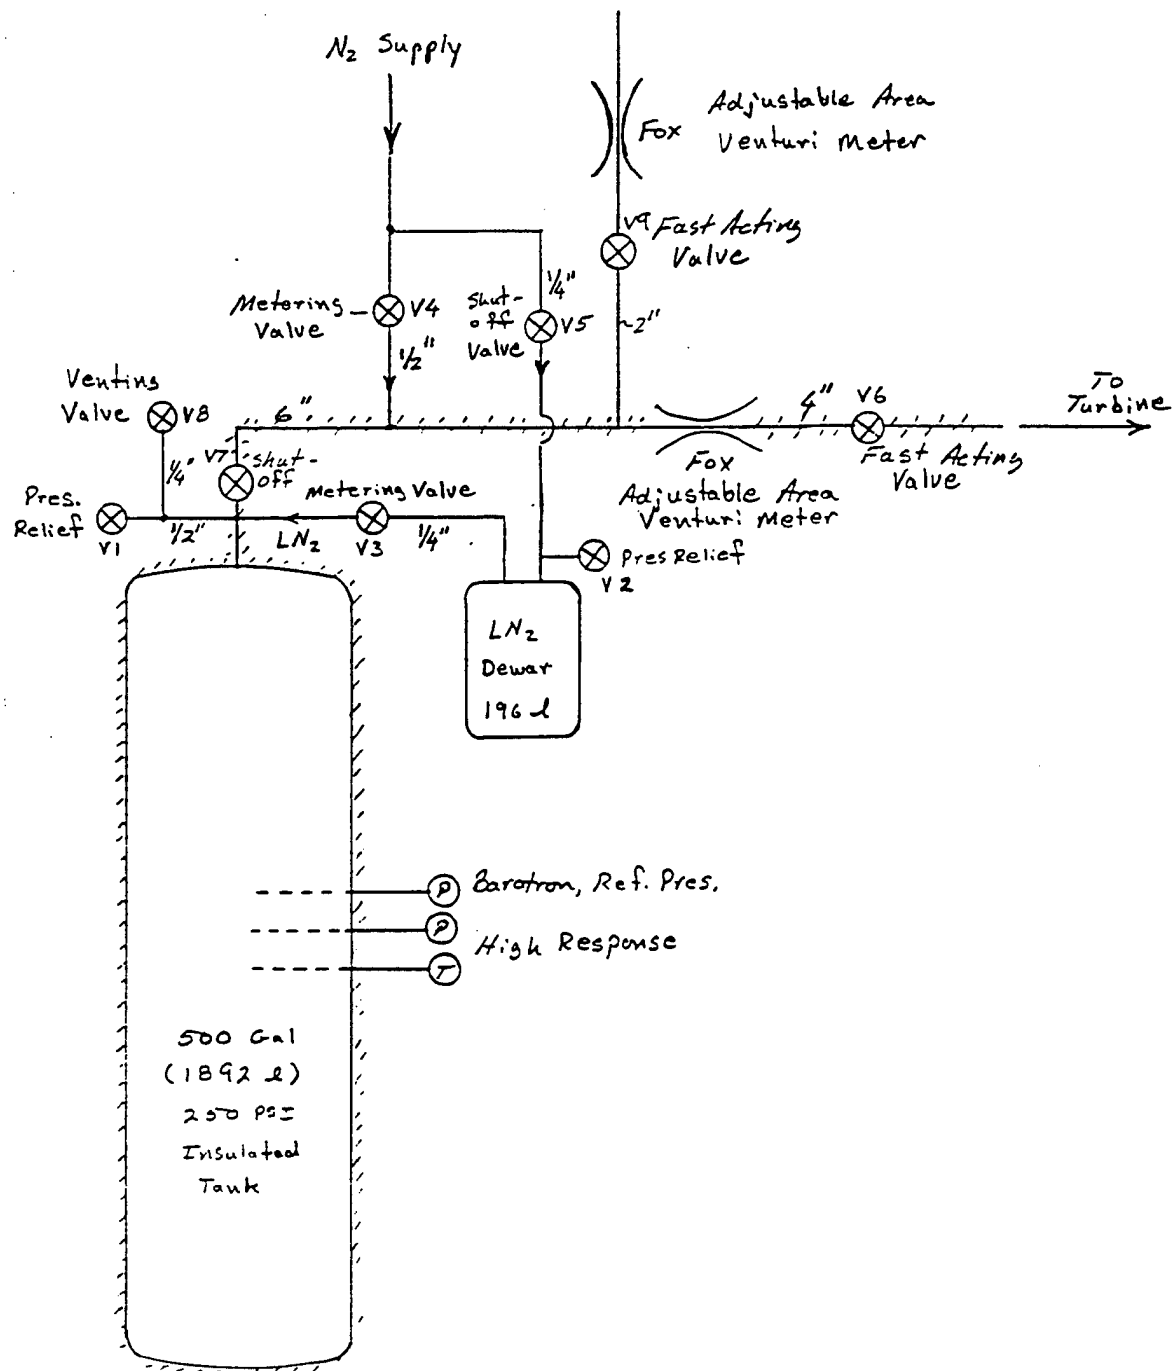 N₂ Supply
Adjustable Area
Fox
Venturi Meter
V9 Fast Acting
Valve
1/4"
Metering
Valve
V4
Shut-
off
Valve
V5
1/2"
2"
Venting
Valve
V8
6"
4"
V6
To
Turbine
V7
Shut-
off
1/4"
Fox
Adjustable Area
Venturi Meter
Fast Acting
Valve
Pres.
Relief
V1
1/2"
LN₂
Metering Valve
V3
1/4"
Pres Relief
V2
LN₂
Dewar
196 l
P
Barotron, Ref. Pres.
P
High Response
T
500 Gal
(1892 l)
250 PSI
Insulated
Tank